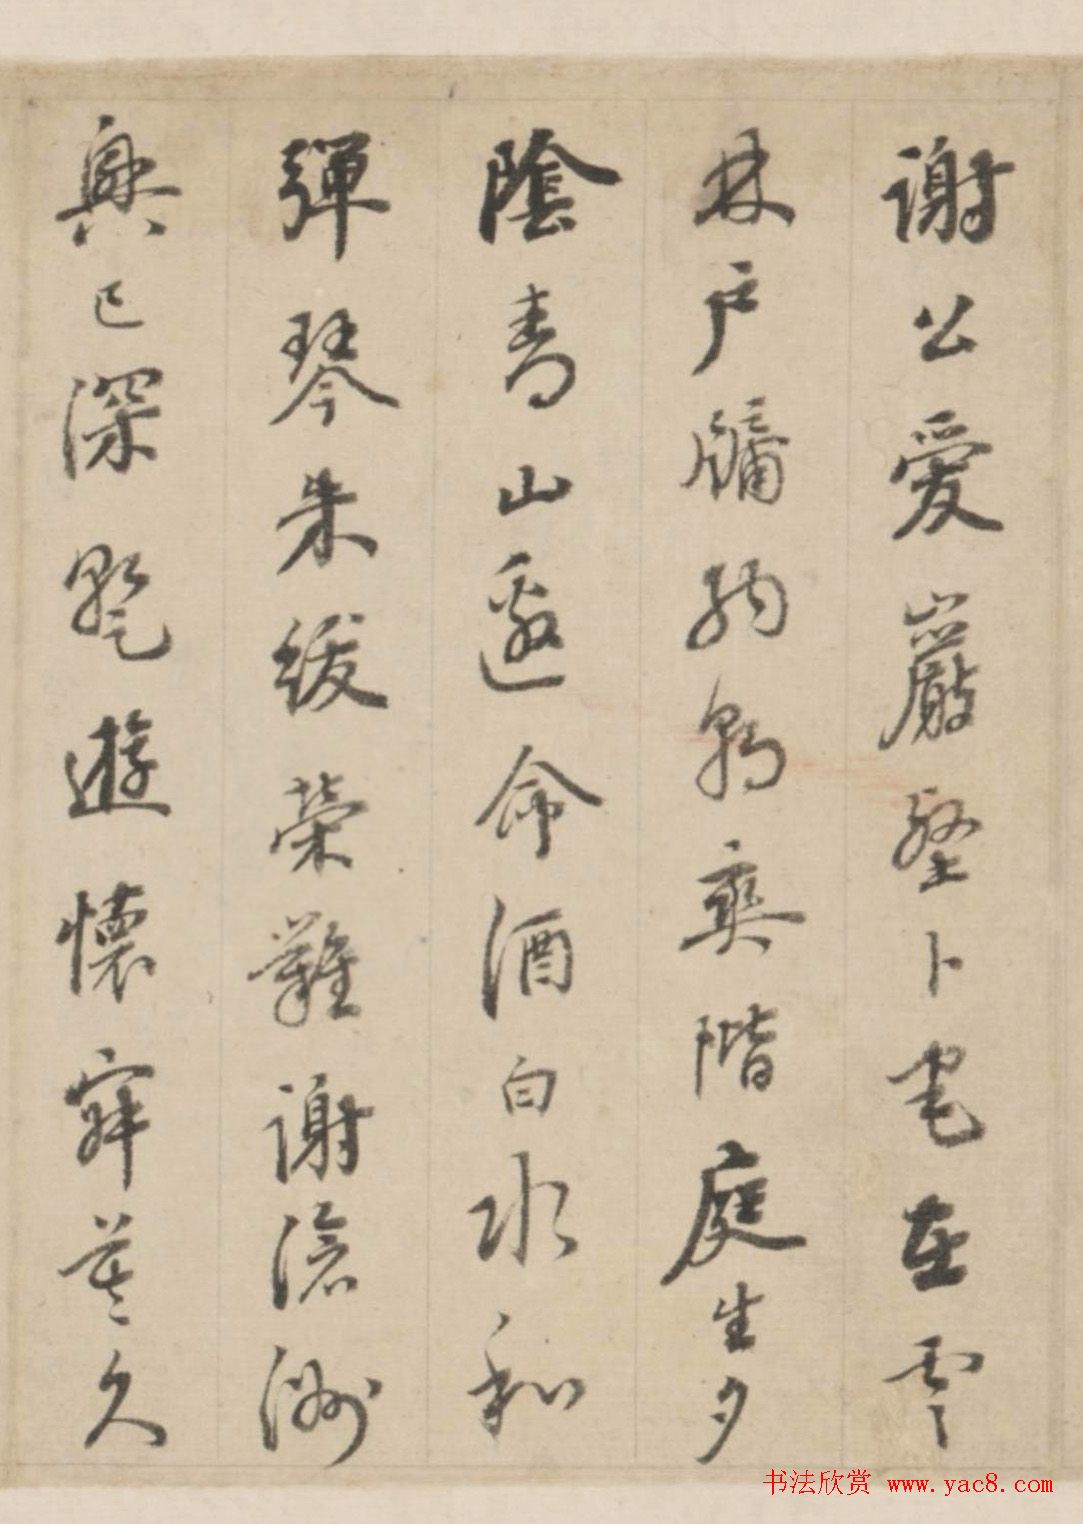 謝公愛巖壑卜宅在雲
林戶牖納朝爽階庭生夕
陰青山邀命酒白水和
彈琴朱紱榮難謝滄洲
興已深遊懷寂莫久
书法欣赏 www.yac8.com